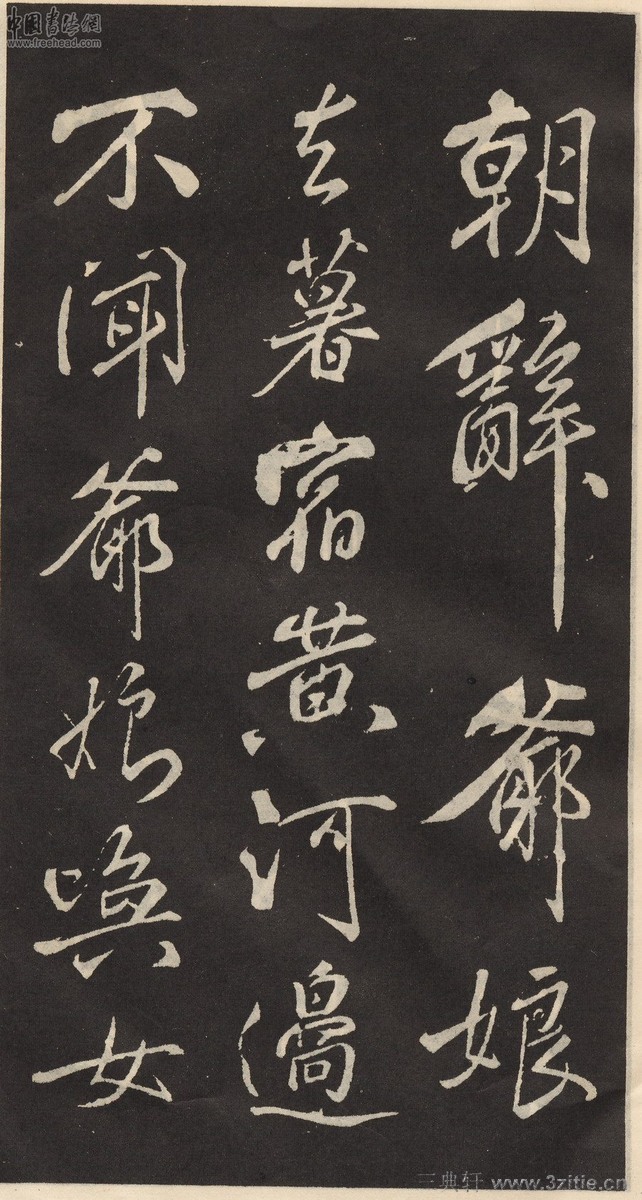 朝辭爺娘
去暮宿黃河邊
不聞爺娘喚女
中国書法網
www.freehead.com
三典轩 www.3zitie.cn